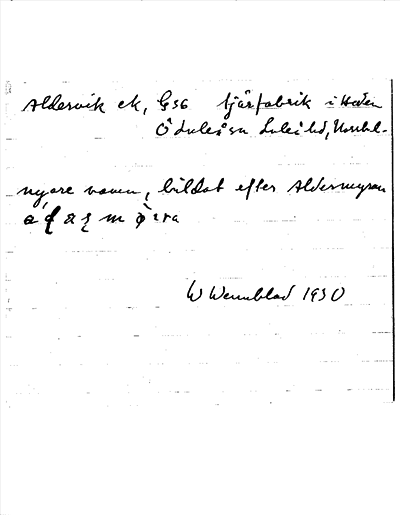 Aldersvik ek, G56 tjärfabrik i Heden
Ö duleåsn Luleå ld, Norrbl.
nyare namn, bildat efter Aldermyran
W Wennblad 1930